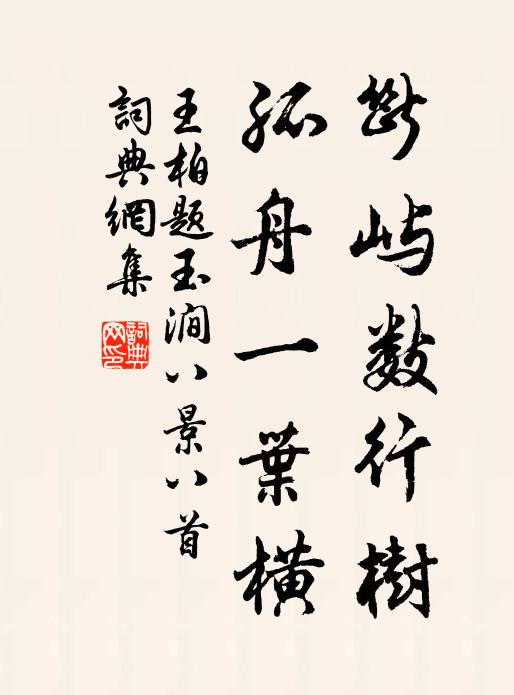 斷嶼數行樹
孤舟一葉橫
王柏題玉澗八景八首
詞典網集
詞典网印